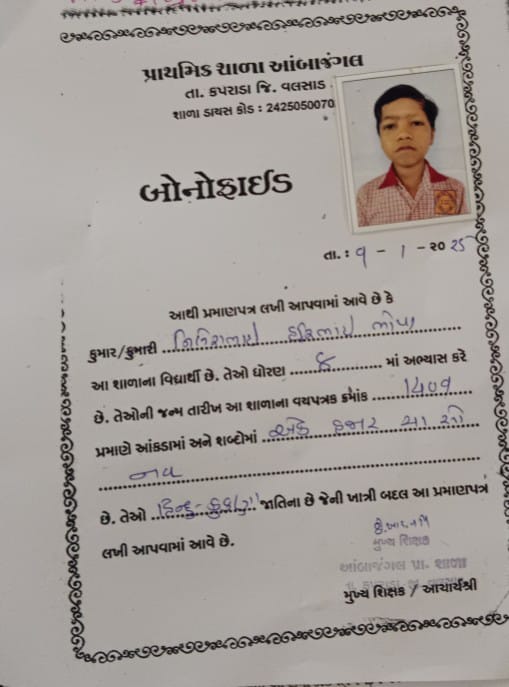 પ્રાથમિક શાળા આંબાજંગલ
તા. કપરાડા જિ. વલસાડ.
શાળા ડાયસ કોડ : 2425050070
બોનોફાઈડ
તા. : ૧ - 1 - ૨૦ ૨૫
આથી પ્રમાણપત્ર લખી આપવામાં આવે છે કે
કુમાર/કુમારી
આ શાળાના વિદ્યાર્થી છે. તેઓ ધોરણ ૪ માં અભ્યાસ કરે
છે. તેઓની જન્મ તારીખ આ શાળાના વયપત્રક ક્રમાંક 1409
પ્રમાણે આંકડામાં અને શબ્દોમાં એક હજાર ચા સો
નવ
છે. તેઓ હિન્દુ - જાતિના છે જેની ખાત્રી બદલ આ પ્રમાણપત્ર
લખી આપવામાં આવે છે.
મુખ્ય શિક્ષક
આંબાજંગલ પ્રા. શાળા
મુખ્ય શિક્ષક / આચાર્યશ્રી